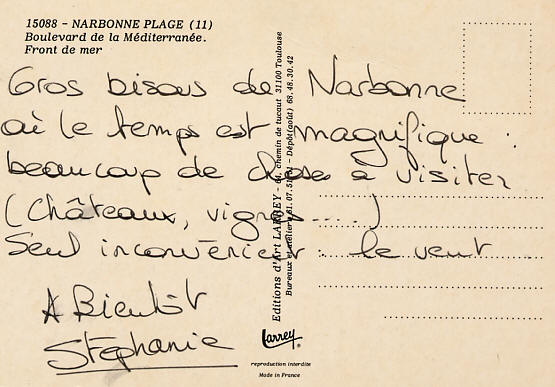 15088 - NARBONNE PLAGE (11)
Boulevard de la Méditerranée.
Front de mer
Gros bisous de Narbonne
où le temps est magnifique :
beaucoup de chose a visiter
(châteaux, vignes ....)
Seul inconvénient : le vent
A Bientôt
Stéphanie
Editions d'Art LARREY - 64, chemin de tucaut 31100 Toulouse
Bureaux et ateliers 61.07.51 - Dépôt(août) 68.48.30.42
Larrey
reproduction interdite
Made in France